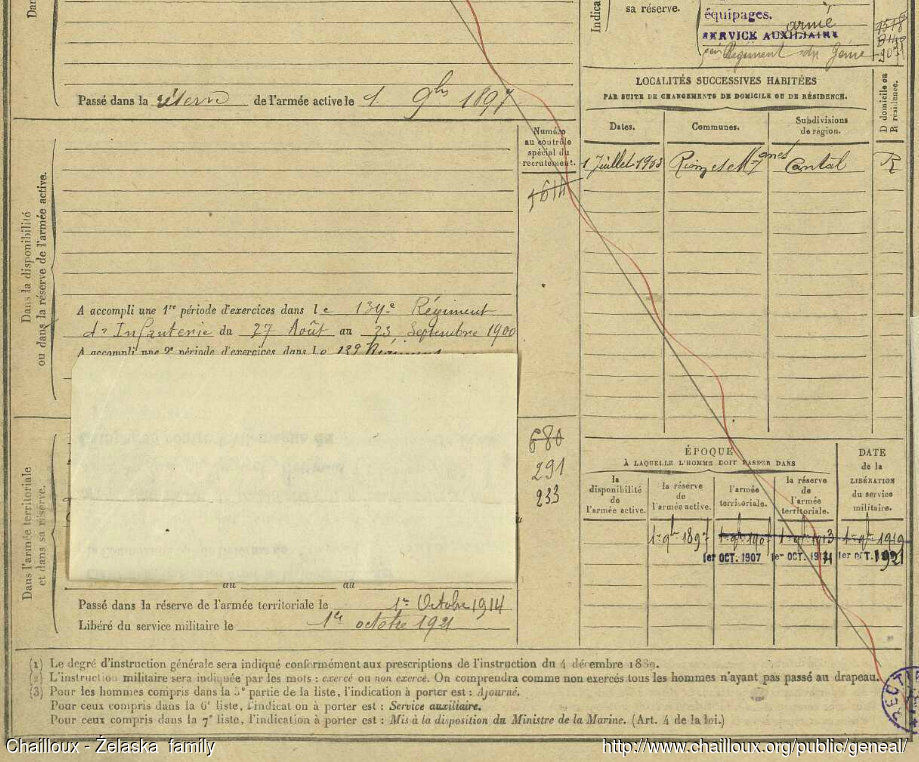 Dan
Indica
sa réserve.
équipages.
armé
SERVICE AUXILIAIRE
Régiment du Génie
Passé dans la réserve de l'armée active le 1 9bre 1897
LOCALITÉS SUCCESSIVES HABITÉES
PAR SUITE DE CHANGEMENTS DE DOMICILE OU DE RÉSIDENCE.
D domicile ou
R résidence.
Dates.
Communes.
Subdivisions
de région.
Numéro
au contrôle
spécial du
recrutement.
1 Juillet 1903
Cantal
R
Dans la disponibilité
ou dans la réserve de l'armée active.
A accompli une 1re période d'exercices dans le 139e Régiment
d'Infanterie du 27 Août au 23 Septembre 1900
A accompli une 2e période d'exercices dans le 139 Régiment
Dans l'armée territoriale
et dans sa réserve.
680
291
233
ÉPOQUE
À LAQUELLE L'HOMME DOIT PASSER DANS
DATE
de la
LIBÉRATION
du service
militaire.
la
disponibilité
de
l'armée active.
la réserve
de
l'armée active.
l'armée
territoriale.
la réserve
de
l'armée
territoriale.
1er 9bre 1897
1er 9bre 1907
1er 9bre 1913
1er 9bre 1919
1er OCT. 1907
1er OCT. 1914
1er OCT. 1921
au
au
Passé dans la réserve de l'armée territoriale le 1er Octobre 1914
Libéré du service militaire le 1er octobre 1921
(1) Le degré d'instruction générale sera indiqué conformément aux prescriptions de l'instruction du 4 décembre 1889.
(2) L'instruction militaire sera indiquée par les mots : exercé ou non exercé. On comprendra comme non exercés tous les hommes n'ayant pas passé au drapeau.
(3) Pour les hommes compris dans la 5e partie de la liste, l'indication à porter est : Ajourné.
Pour ceux compris dans la 6e liste, l'indication à porter est : Service auxiliaire.
Pour ceux compris dans la 7e liste, l'indication à porter est : Mis à la disposition du Ministre de la Marine. (Art. 4 de la loi.)
RECT
Chailloux - Żelaska family
http://www.chailloux.org/public/geneal/